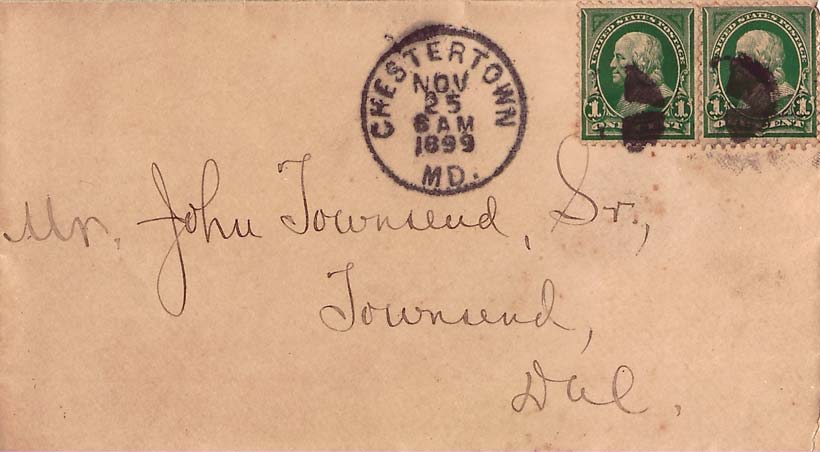 CHESTERTOWN
NOV
25
6 AM
1899
MD.
UNITED STATES POSTAGE
1 1
ONE CENT
UNITED STATES POSTAGE
1 1
ONE CENT
Mr. John Townsend, Sr.,
Townsend,
Del.